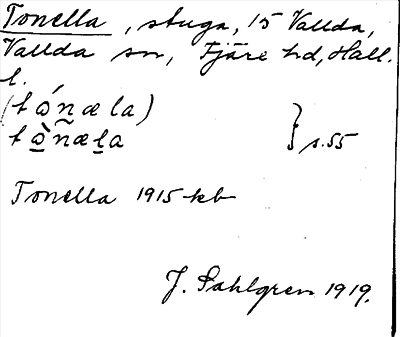 Tonella, stuga, 15 Vallda,
Vallda sn, Fjäre hd, Hall.
l.
(tóñæla)
tòñæla } s. 55
Tonella 1915 kb
J. Sahlgren 1919.